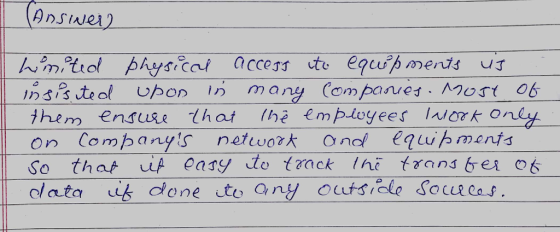 (Answer)
Limited physical access to equipments is
insisted upon in many Companies. Most of
them ensure that the employees work only
on Company's network and equipments
so that it easy to track the transfer of
data if done to any outside sources.